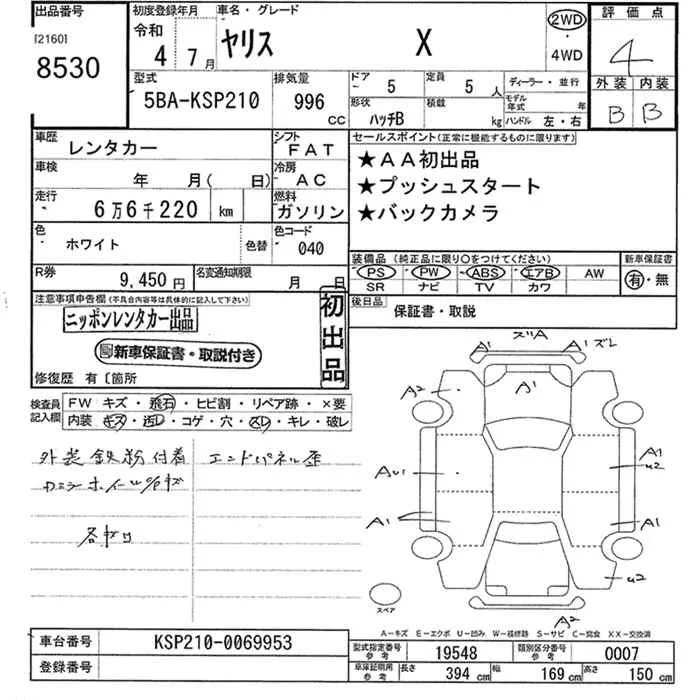 出品番号
[2160]
8530
初度登録年月
令和
4 7月
車名・グレード
ヤリス X
2WD
・
4WD
評価点
4
外装 内装
B B
型式
5BA-KSP210
排気量
996 CC
ドア 5
定員 5 人
形状 ハッチB
積載 kg
ディーラー・並行
モデル年式 年
ハンドル 左・右
車歴 レンタカー
シフト FAT
車検 年 月( 日)
冷房 AC
走行 6万6千220 km
燃料 ガソリン
色 ホワイト
色替
色コード 040
R券 9,450円
名変通知期限 月 日
セールスポイント(正常に機能するものに限ります)
★AA初出品
★プッシュスタート
★バックカメラ
装備品(純正品に限り○をつけてください)
PS PW ABS エアB AW
SR ナビ TV カワ
新車保証書
有・無
後日品 保証書・取説
注意事項申告欄(不具合内容等は具体的に記入して下さい)
ニッポンレンタカー出品
新車保証書・取説付き
初出品
修復歴 有〔箇所
検査員記入欄
FW キズ・飛石・ヒビ割・リペア跡・×要
内装 キズ・汚レ・コゲ・穴・スレ・キレ・破レ
外装鉄粉付着
エンドパネル歪
各キズ凹
ズレA
A1
A1ズレ
A1
A2
A1
U2
AU1
A1
A1
U2
A2
スペア
A-キズ E-エクボ U-凹み W-補修跡 S-サビ C-腐食 XX-交換済
車台番号 KSP210-0069953
登録番号
型式指定番号 参考 19548
類別区分番号 参考 0007
車庫証明用 参考 長さ 394 cm 幅 169 cm 高さ 150 cm